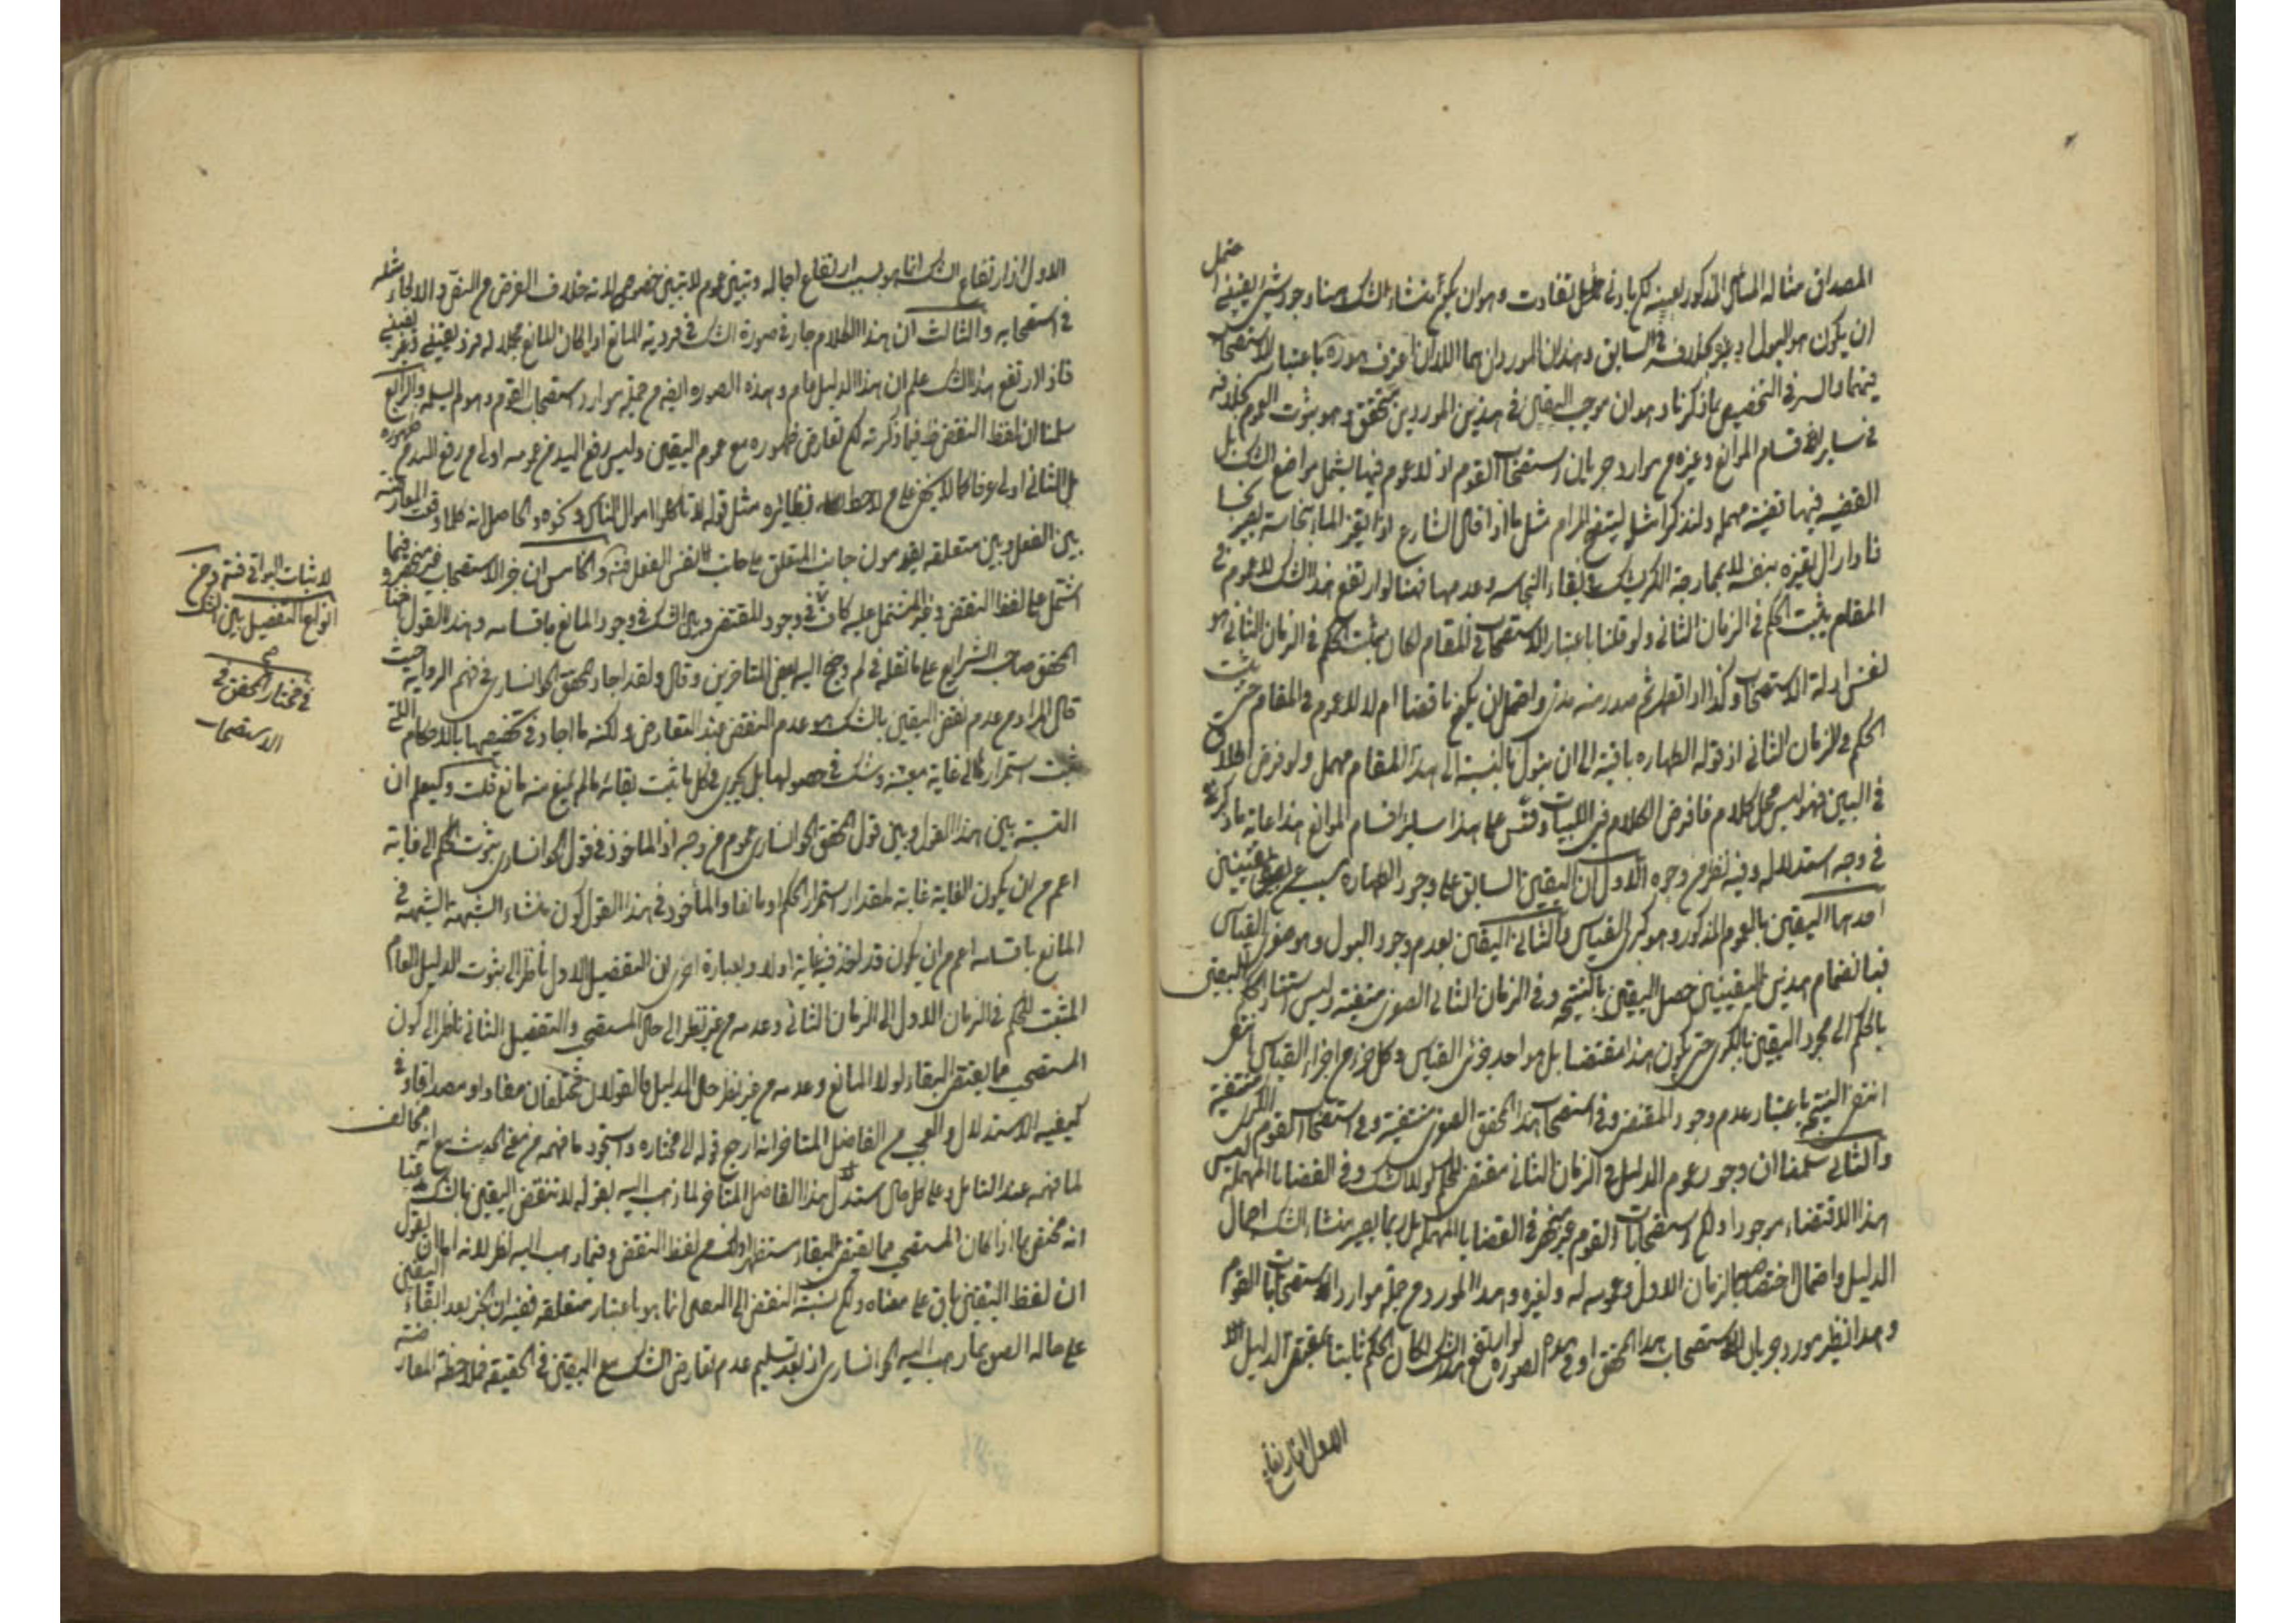 المصداق مثاله المسائل المذكور بعينه لكن بادنى تفاوت وهو ان يكون منشاء الشك هنا وجود شئ يقينى احتمل
ان يكون هو البول او غيره بخلافه فى السابق وهذان الموردان هما اللذان اعترف هو ره باعتبار الاستصحاب
فيهما والسر فى التخصيص ما ذكرنا وهو ان موجب اليقين فى هذين الموردين متحقق وهو ثبوت العموم بخلافه
فى ساير اقسام الموانع وغيره من موارد جريان استصحاب القوم اذ لا عموم فيها يشمل مواضع الشك بل
القضية فيها قضية مهملة ولنذكر امثلة ليتضح المرام مثل ما اذا قال الشارع اذا تغير الماء بنجاسة يصير نجسا
فاذا زال تغيره بنفسه لا بمعارضة الكر يشك فى بقاء النجاسه وعدمها فهنا لو ارتفع هذا الشك لا عموم فى
المقام يثبت الحكم فى الزمان الثانى ولو قلنا باعتبار الاستصحاب فى المقام لكان مثبت الحكم فى الزمان الثانى هو
نفس ادلة الاستصحاب وكذا اذا تطهر ثم صدر منه مذى واحتمل ان يكون ناقضا ام لا لا عموم فى المقام حتى يثبت
الحكم فى الزمان الثانى اذ قوله الطهاره باقية الى ان يبول بالنسبة الى هذا المقام مهمل ولو فرض اطلاق
فى البين فهو ليس محل كلام فافرض الكلام فى اللبيات وقس على هذا ساير اقسام الموانع هذا غاية ما ذكره
فى وجه استدلاله وفيه نظر من وجوه الاول ان اليقين السابق على وجود الطهاره مسبب عن يقينين
احدهما اليقين بالعموم المذكور وهو كبرى القياس والثانى اليقين بعدم وجود البول وهو صغرى القياس
فبانضمام هذين اليقينين حصل اليقين بالنتيجه وفى الزمان الثانى الصغرى منتفية وليس استناد اليقين
بالحكم الى مجرد اليقين بالكبرى حتى يكون هذا مقتضيا بل هو احد جزئى القياس وكل جزء من اجزاء القياس انتفى
انتفى النتيجه باعتبار عدم وجود المقتضى وفى استصحاب هذا المحقق الصغرى منتفية وفى استصحاب القوم الكبرى منتفية
والثانى سلمنا ان وجود عموم الدليل فى الزمان الثانى مقتضى للحكم لولا الشك وفى القضايا المهملة ليس
هذا الاقتضاء موجودا ولكن استصحابات القوم غير منحصر فى القضايا المهملة بل ربما يصير منشاء الشك اجمال
الدليل واحتمال اختصاصه بالزمان الاول وعمومه له ولغيره وهذا المورد من جملة موارد استصحابات القوم
وهذا نظير مورد جريان الاستصحاب هذا المحقق اذ فى هذه الصوره لو ارتفع هذا الشك لكان الحكم ثابتا بمقتضى الدليل
الاول اذ ارتفاع
الاول اذ ارتفاع الشك انما هو بسبب ارتفاع اجماله وتبين عموم لا تبين خصوص لانه خلاف الفرض
فى استصحابه والثالث ان هذا الكلام جار فى صورة الشك فى فردية المانع اذا كان المانع مجملا له فرد يقينى وغير يقينى
فاذا ارتفع هذا الشك علم ان هذا الدليل عام وهذه الصوره ايضا من جملة موارد استصحاب القوم وهو لم يسلمه والرابع
سلمنا ان لفظ النقض ظ فيما ذكرته لكن تعارض ظهوره مع عموم اليقين وليس رفع اليد من عمومه اولى من رفع اليد من ظهوره
بل الثانى اولى عرفا كما لا يخفى على من لاحظ نظائره مثل قوله لا تاكلوا اموال الناس ونحوه والحاصل انه كلما وقعت المعارضة
بين الفعل وبين متعلقه يقدمون جانب المتعلق على جانب نفس الفعل والخامس ان خبر الاستصحاب غير منحصر فيما
اشتمل على لفظ النقض وغير المشتمل عليه كاف فى وجود المقتضى وبين الشك فى وجود المانع باقسامه وهذا القول
المحقق صاحب الشرايع على ما نقل فى لم وجنح اليه بعض المتاخرين وقال ولقد اجاد المحقق الخوانسارى فى فهم الرواية حيث
قال المراد من عدم نقض اليقين بالشك هو عدم النقض عند التعارض ولكنه ما اجاد فى تخصيصها بالاحكام التى
ثبت استمرارها الى غاية معينة وشك فى حصولها بل يجرى فى كل ما ثبت بقائه ما لم يمنع منه مانع قلت وليعلم ان
النسبة بين هذا القول وبين قول المحقق الخوانسارى عموم من وجه اذ الماخوذ فى قول الخوانسارى ثبوت الحكم الى غاية
اعم من ان يكون الغاية غاية لمقدار استمرار الحكم او مانعا والمأخوذ فى هذا القول كون منشاء الشبهة الشبهة فى
المانع باقسامه اعم من ان يكون قد اخذ فيه غاية اولا وبعبارة اخرى ان التفصيل الاول ناظر الى ثبوت الدليل العام
المثبت للحكم فى الزمان الاول الى الزمان الثانى وعدمه من غير نظر الى حال المستصحب والتفصيل الثانى ناظر الى كون
المستصحب مما يقتضى البقاء لولا المانع وعدمه من غير نظر حال الدليل فالقولان مختلفان مفادا ومصداقا وفى
كيفيه الاستدلال والعجب من الفاضل المتاخر انه ارجع قوله الى مختاره واستجود ما فهمه من معنى الحديث مع انه مخالف
لما فهمه عند التامل وعلى كل حال استدل هذا الفاضل المتاخر لما ذهب اليه بقوله لا تنقض اليقين بالشك
انه مختص بما اذا كان المستصحب مما يقتضى البقاء استظهر ذلك من لفظ النقض وفيما ذهب اليه نظر لانه اما ان يقول
ان لفظ اليقين باق على معناه ولكن نسبة النقض الى اليقين انما هو باعتبار متعلقه ففيه ان الخبر بعد ابقاء اليقين
على حاله الصق بما ذهب اليه الخوانسارى اذ بعد تسليم عدم تعارض الشك مع اليقين فى الحقيقة فملاحظة المعارضة
لاثبات البواقى
انواع التفصيل بين الشك
فى مختار المحقق فى
الاستصحاب